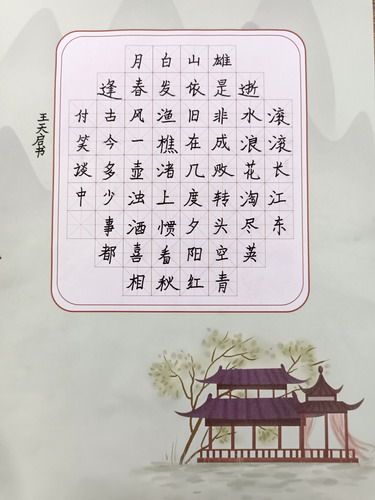 滚滚长江东
逝水浪花淘尽英
雄是非成败转头空青
山依旧在几度夕阳红
白发渔樵渚上惯看秋
月春风一壶浊酒喜相
逢古今多少事都
付笑谈中
王天启书